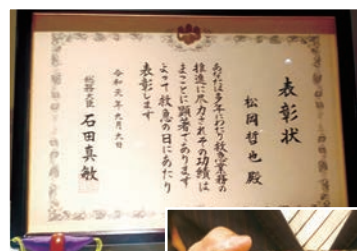 表彰状
松岡哲也殿
あなたは多年にわたり救急業務の
推進に尽力されその功績は
まことに顕著であります
よって救急の日にあたり
表彰します
令和元年九月九日
総務大臣 石田真敏